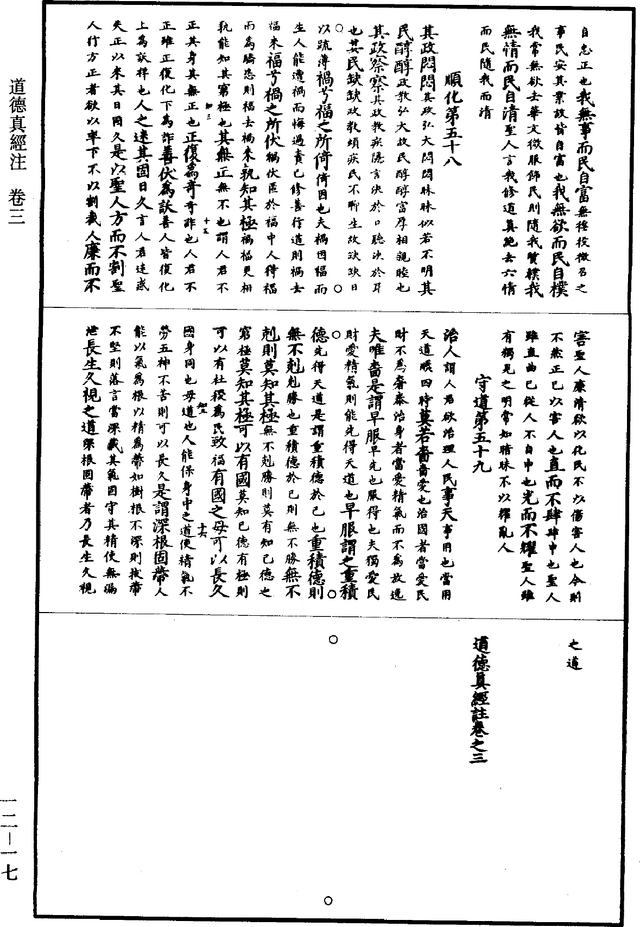 道德真經注　卷三
自忠正也我無事而民自富無徭役徵召之
事民安其業故皆自富也我無欲而民自樸
我常無欲去華文微服飾民則隨我質樸我
無情而民自清聖人言我修道真絕去六情
而民隨我而清
順化第五十八
其政悶悶其政弘大悶悶昧昧似若不明其
民醇醇政教弘大故民醇醇富厚相親睦也
其政察察其政教疾隱言決於口聽決於耳
也其民缺缺政教煩疾民不聊生故缺缺日
以疏薄禍兮福之所倚倚因也夫禍因福而
生人能遭禍而悔過責己修善行道則禍去
福來福兮禍之所伏禍伏匿於福中人得福
而為驕恣則福去禍來孰知其極禍福更相
孰能知其窮極也其無正無不也謂人君不
正其身其無正也正復為奇奇詐也人君不
正雖正復化下為詐善伏為訞善人皆復化
上為訞祥也人之迷其固日久言人君迷惑
失正以來其日固久是以聖人方而不割聖
人行方正者欲以率下不以割截人廉而不
十五
害聖人廉清欲以化民不以傷害人也今則
不然正己以害人也直而不肆肆申也聖人
雖直曲己從人不自申也光而不耀聖人雖
有獨見之明常如暗昧不以耀亂人
守道第五十九
治人謂人君欲治理人民事天事用也當用
天道順四時莫若嗇嗇愛也治國者當愛民
財不為奢泰治身者當愛精氣而不為放逸
夫唯嗇是謂早服早先也服得也夫獨愛民
財愛精氣則能先得天道也早服謂之重積
德先得天道是謂重積德於己也重積德則
無不剋剋勝也重積德於己則無不勝無不
剋則莫知其極無不剋勝則莫有知己德之
窮極莫知其極可以有國莫知己德有極則
可以有社稷為民致福有國之母可以長久
十六
國身同也母道也人能保身中之道使精氣不
勞五神不苦則可以長久是謂深根固蔕人
能以氣為根以精為蔕如樹根不深則拔蔕
不堅則落言當深藏其氣固守其精使無漏
泄長生久視之道深根固蔕者乃長生久視
之道
道德真經註卷之三
一二—一七